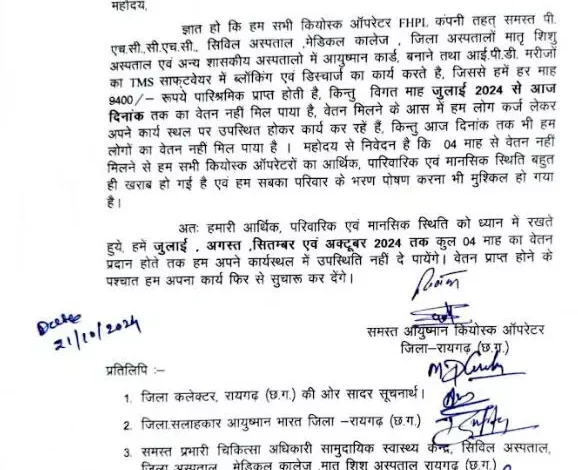 महोदय,
ज्ञात हो कि हम सभी कियोस्क ऑपरेटर FHPL कंपनी तहत् समस्त पी.
एच.सी.,सी.एच.सी., सिविल अस्पताल ,मेडिकल कालेज , जिला अस्पतालों मातृ शिशु
अस्पताल एवं अन्य शासकीय अस्पतालो में आयुष्मान कार्ड, बनाने तथा आई.पी.डी. मरीजों
का TMS साफ्टवेयर में ब्लोंकिंग एवं डिस्चार्ज का कार्य करते है, जिससे हमें हर माह
9400/– रूपये पारिश्रमिक प्राप्त होती है, किन्तु विगत माह जुलाई 2024 से आज
दिनांक तक का वेतन नहीं मिल पाया है, वेतन मिलने के आस में हम लोग कर्ज लेकर
अपने कार्य स्थल पर उपस्थित होकर कार्य कर रहें हैं, किन्तु आज दिनांक तक भी हम
लोगों का वेतन नहीं मिल पाया है । महोदय से निवेदन है कि 04 माह से वेतन नहीं
मिलने से हम सभी कियोस्क ऑपरेटरों का आर्थिक, पारिवारिक एवं मानसिक स्थिति बहुत
ही खराब हो गई है एवं हम सबका परिवार के भरण पोषण करना भी मुश्किल हो गया
है।
अतः हमारी आर्थिक, परिवारिक एवं मानसिक स्थिति को ध्यान में रखते
हुये, हमें जुलाई , अगस्त ,सितम्बर एवं अक्टूबर 2024 तक कुल 04 माह का वेतन
प्रदान होते तक हम अपने कार्यस्थल में उपस्थिति नहीं दे पायेंगे। वेतन प्राप्त होने के
पश्चात हम अपना कार्य फिर से सुचारू कर देंगे।
Date
21/10/2024
समस्त आयुष्मान कियोस्क ऑपरेटर
जिला–रायगढ़ (छ.ग.)
प्रतिलिपि :–
1. जिला कलेक्टर, रायगढ़ (छ.ग.) की ओर सादर सूचनार्थ।
2. जिला.सलाहकार आयुष्मान भारत जिला –रायगढ़ (छ.ग.)
3. समस्त प्रभारी चिकित्सा अधिकारी सामुदायिक स्वास्थ्य केन्द्र, सिविल अस्पताल,
जिला अस्पताल मेडिकल कालेज ,मातृ शिशु अस्पताल रायगढ़ (छ.ग.)